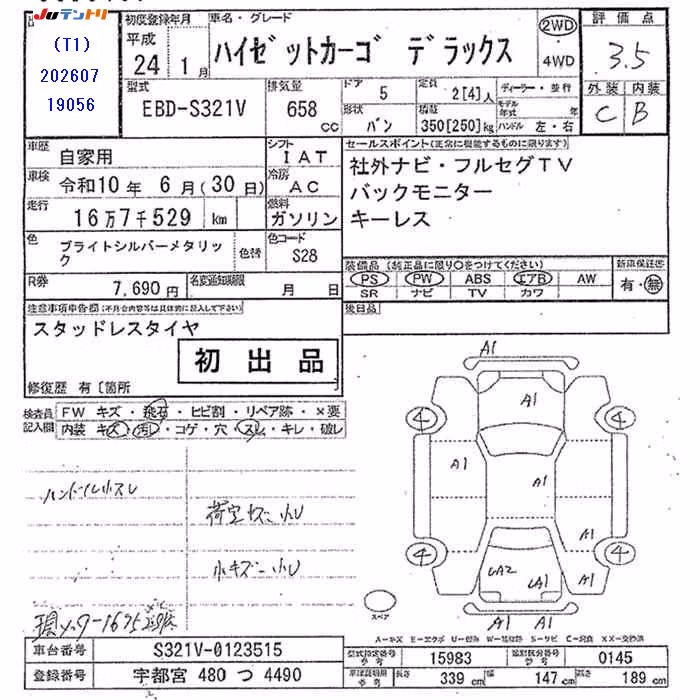 JUテントリ
(T1)
202607
19056
初度登録年月
平成
24 1月
車名・グレード
ハイゼットカーゴ デラックス
2WD
4WD
評価点
3.5
外装 内装
C B
型式
EBD-S321V
排気量
658 cc
ドア
5
形状
バン
定員
2[4]人
積載
350[250]kg
ディーラー・並行
モデル年式 年
ハンドル 左・右
車歴
自家用
シフト
IAT
車検
令和10年 6月(30日)
冷房
AC
走行
16万7千529 km
燃料
ガソリン
色
ブライトシルバーメタリック
色替
色コード
S28
R券
7,690円
名変通知期限
月 日
セールスポイント(正常に機能するものに限ります)
社外ナビ・フルセグTV
バックモニター
キーレス
装備品(純正品に限り○をつけてください)
PS PW ABS エアB AW
SR ナビ TV カワ
新車保証書
有・無
後日品
注意事項申告欄(不具合内容等は具体的に記入して下さい)
スタッドレスタイヤ
初出品
修復歴 有〔箇所 〕
検査員記入欄
FW キズ・飛石・ヒビ割・リペア跡・×要
内装 キズ・汚れ・コゲ・穴・スレ・キレ・破レ
ハンドル小スレ
小キズ小
A1
A1
A1
A1
A1
A1
A1
A1
A1
UA2
4
4
4
4
スペア
車台番号
S321V-0123515
登録番号
宇都宮 480 つ 4490
型式指定番号
15983
類別区分番号
0145
長さ 339 cm
幅 147 cm
高さ 189 cm